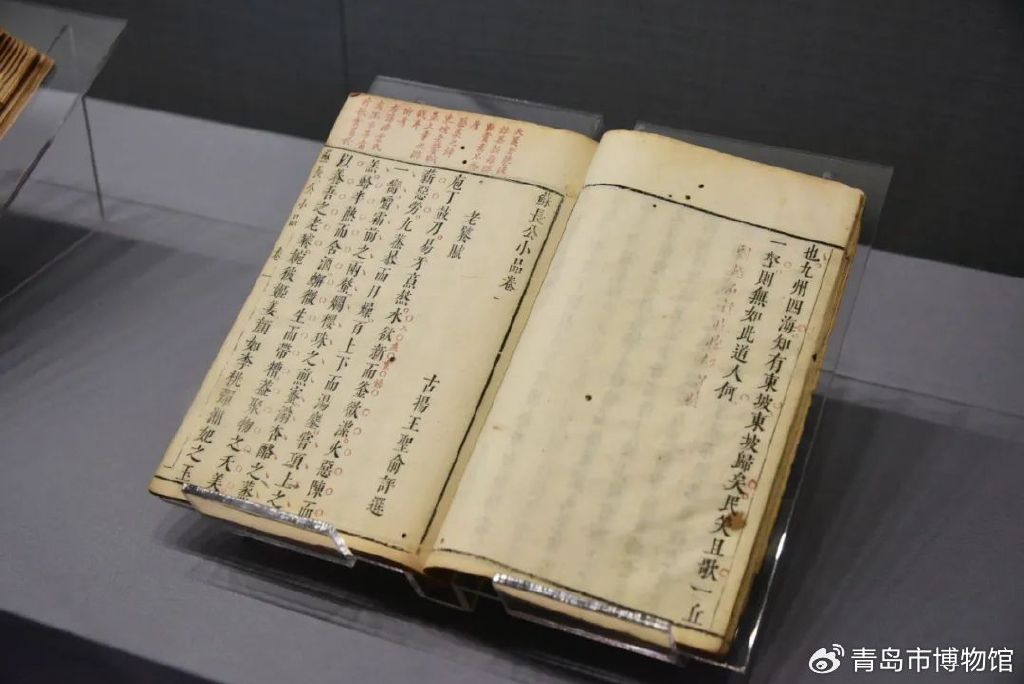 也九州四海知有東坡東坡歸矣民笑且歌一丘
一壑則無如此道人何
蘇長公小品卷一
古揚王聖俞評選
老饕賦
庖丁鼓刀易牙烹熬水欲新而釜欲潔火惡陳而
薪惡勞九蒸暴而日燥百上下而湯鏖嘗項上之
一臠嚼霜前之兩螯爛櫻珠之煎蜜滃杏酪之蒸
羔蛤半熟而含酒蠏微生而帶糟蓋聚物之夭美
以養吾之老饕婉彼姬姜顏如李桃彈湘妃之玉
蘇長公小品 卷一
青岛市博物馆